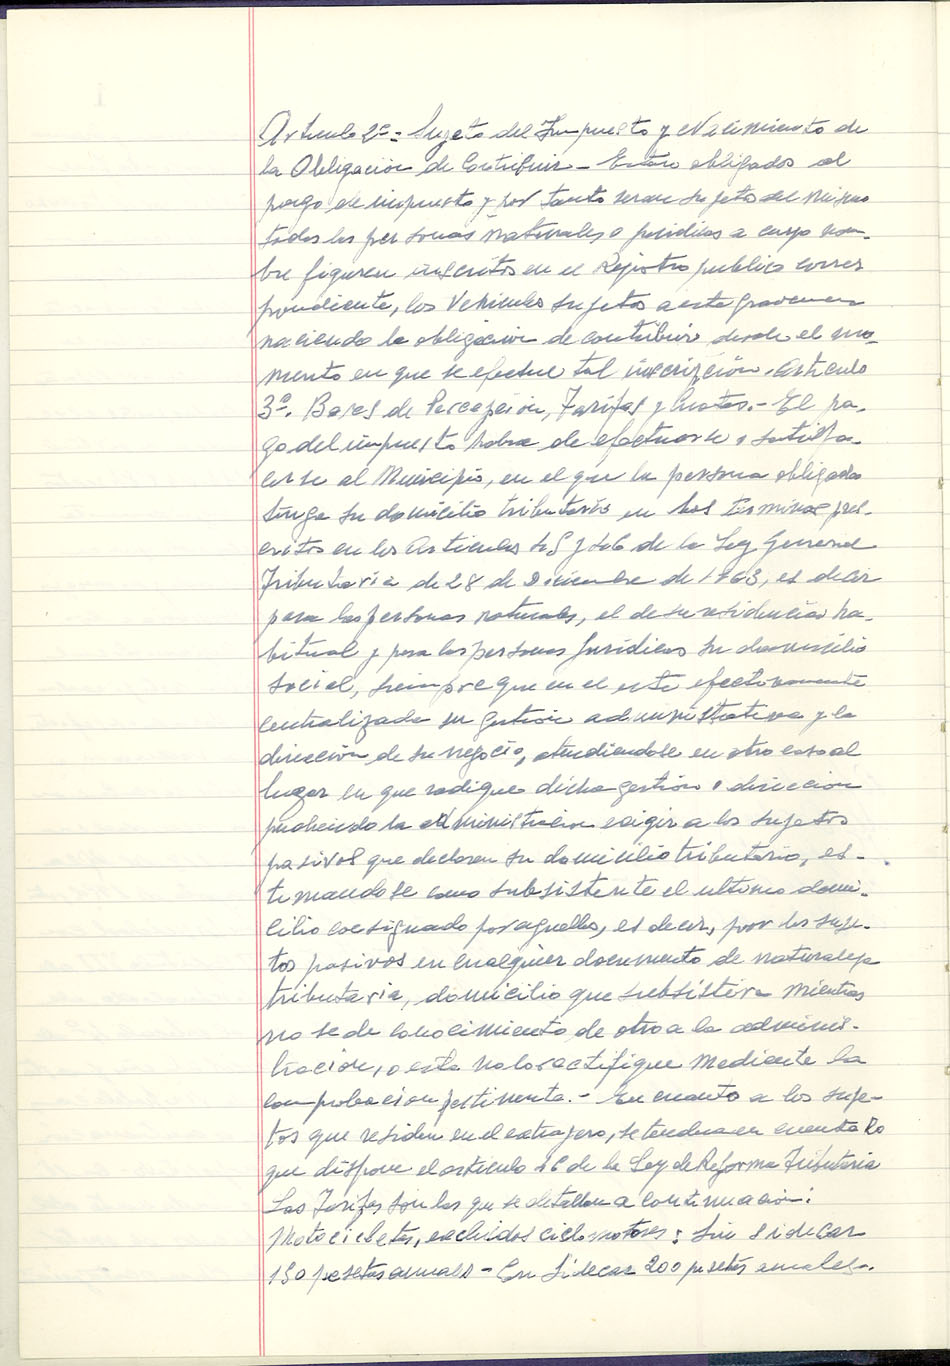 Articulo 2º.- Sujeto del Impuesto y Nacimiento de
la Obligacion de Contribuir - Estan obligados al
pago de impuesto y por tanto seran sujetos del mismo
todas las personas naturales o juridicas a cuyo nom-
bre figuren inscritos en el Registro publico corres
pondiente, los Vehiculos sujetos a este gravamen
naciendo la obligacion de contribuir desde el mo-
mento en que se efectue tal inscripcion. Articulo
3º. Bases de Percepcion, Tarifas y Cuotas.- El pa-
go del impuesto habra de efectuarse o satisfa-
cerse al Municipio, en el que la persona obligada
tenga su domicilio tributario en los terminos pres-
critos en los Articulos 45 y 46 de la Ley General
Tributaria de 28 de Diciembre de 1963, es decir
para las personas naturales, el de su residencia ha-
bitual y para las personas Juridicas su domicilio
social, siempre que en el este efectivamente
centralizada su gestion administrativa y la
direccion de su negocio, atendiendose en otro caso al
lugar en que radique dicha gestion o direccion
pudiendo la Administracion exigir a los sujetos
pasivos que declaren su domicilio tributario, es-
timandose como subsistente el ultimo domi-
cilio consignado por aquellos, es decir, por los suje-
tos pasivos en cualquier documento de naturaleza
tributaria, domicilio que subsistira mientras
no se de conocimiento de otro a la adminis-
tracion, o esta no lo rectifique mediante la
comprobacion pertinente.- En cuanto a los suje-
tos que residen en el extrajero, se tendra en cuenta lo
que dispone el articulo 46 de la Ley de Reforma Tributaria
Las Tarifas son las que se detallan a continuacion:
Motocicletas, excluidos ciclomotores: Sin Sidecar
150 pesetas anuales - Con Sidecar 200 pesetas anuales.